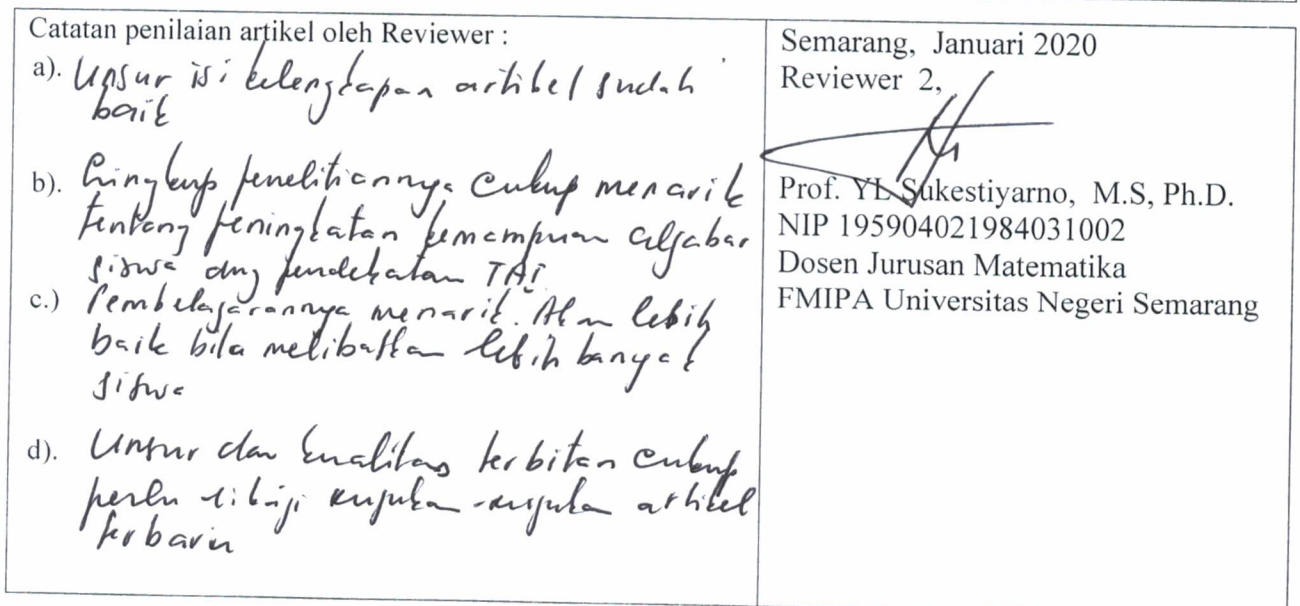 Catatan penilaian artikel oleh Reviewer :
a). Unsur isi kelengkapan artikel sudah
baik
b). Lingkup penelitiannya cukup menarik
tentang peningkatan kemampuan aljabar
siswa dng pendekatan TAI
c.) Pembelajarannya menarik. Akan lebih
baik bila melibatkan lebih banyak
siswa
d). Unsur dan kualitas terbitan cukup
perlu dikaji rujukan-rujukan artikel
terbaru
Semarang, Januari 2020
Reviewer 2,
Prof. YL Sukestiyarno, M.S, Ph.D.
NIP 195904021984031002
Dosen Jurusan Matematika
FMIPA Universitas Negeri Semarang